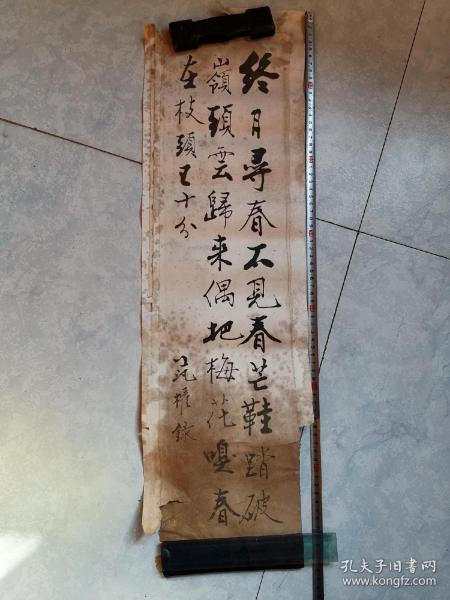 終月尋春不見春芒鞋踏破
嶺頭雲歸来偶把梅花嗅春
在枝頭已十分
孔夫子旧书网
www.kongfz.com